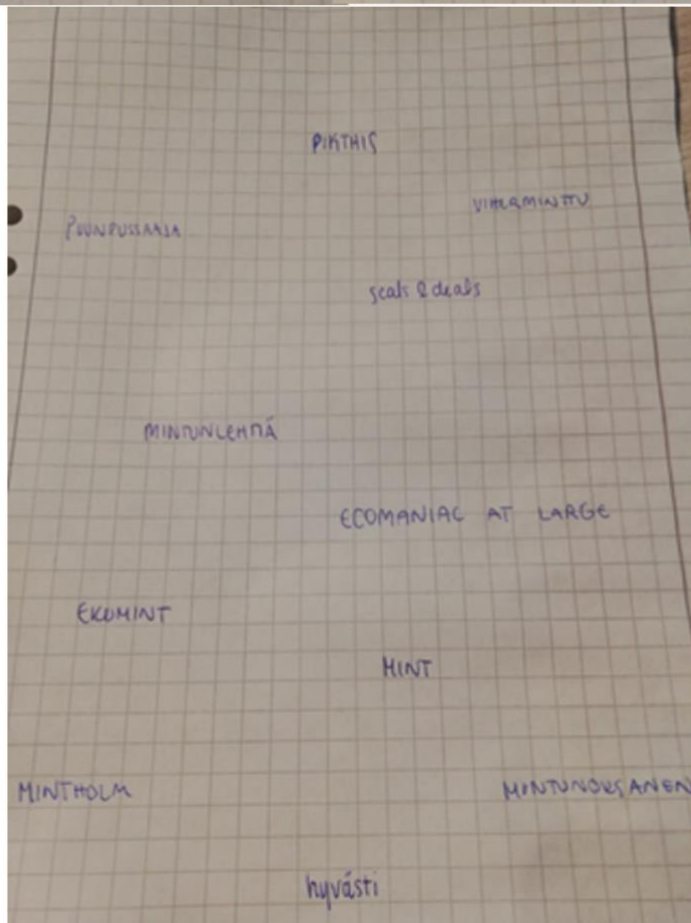 PIKTHIS
VIHERMINTTU
PUUNPUSSAAJA
seals & deals
MINTUNLEHTIÄ
ECOMANIAC AT LARGE
EKOMINT
MINT
MINTHOLM
MINTUNOKSANEN
hyvästi